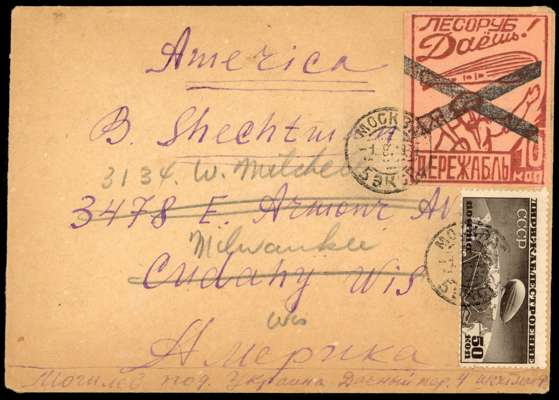 America
B. Shechtman
3134. W. Mitchell
3478 E. Armour Av
Milwaukee
Cudahy Wis
Wis
Америка
Могилев под. Украина Дачный пер. 4
ЛЕСОРУБ
Даёшь!
ДЕРЕЖАБЛЬ
10
КОП
МОСКВА
ДИРИЖАБЛЕСТРОЕНИЕ
СССР
ПОЧТА
50
КОП
МОСКВА